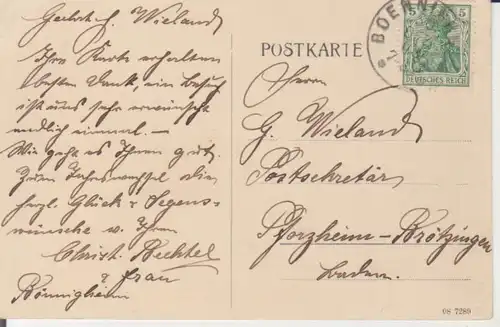 Geehrt. H. Wieland
Ihre Karte erhalten
besten Dank, ein Besuch
ist uns sehr erwünscht
endlich einmal. —
Wie geht es Ihnen gut,
Zum Jahreswechsel die
herzl. Glück & Segens-
wünsche v. Ihrem
Christ. Bechtel
& Frau
Bönnigheim
POSTKARTE
Herrn
G. Wieland
Postsekretär
Pforzheim-Brötzingen
Baden.
BOENNI
5 5
DEUTSCHES REICH
08 7289